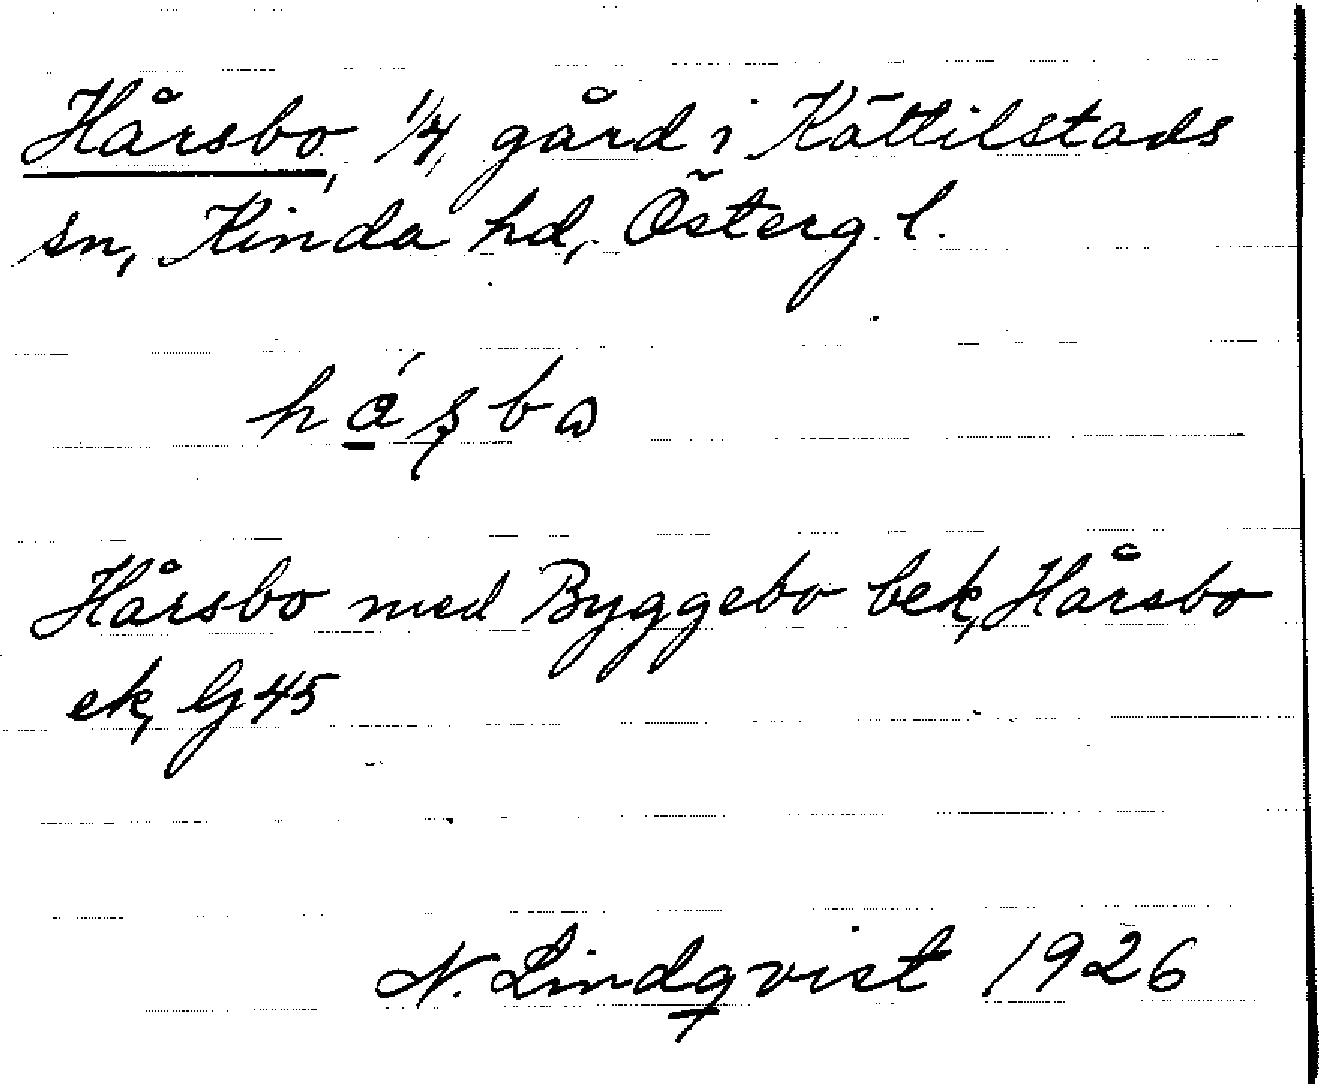 Hårsbo, 1/4, gård i Kättilstads
sn, Kinda hd, Österg. l.
Hårsbo med Byggebo bek, Hårsbo
ek, G 45
N. Lindqvist 1926